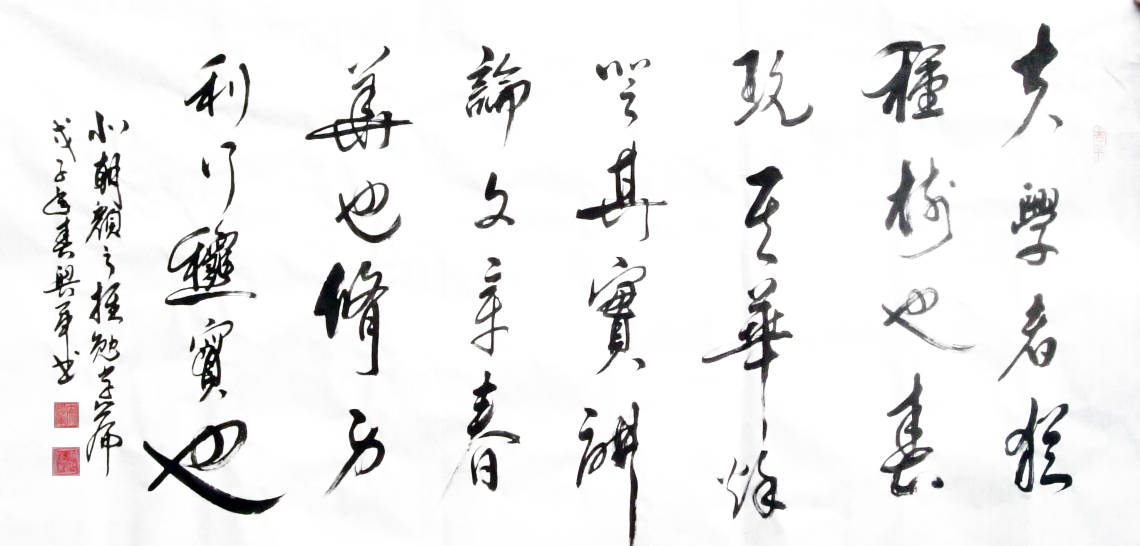 夫學者猶
種樹也春
玩其華秋
登其實講
論文章春
華也脩身
利行龝實也
北朝顏之推勉学篇
戊子春興书